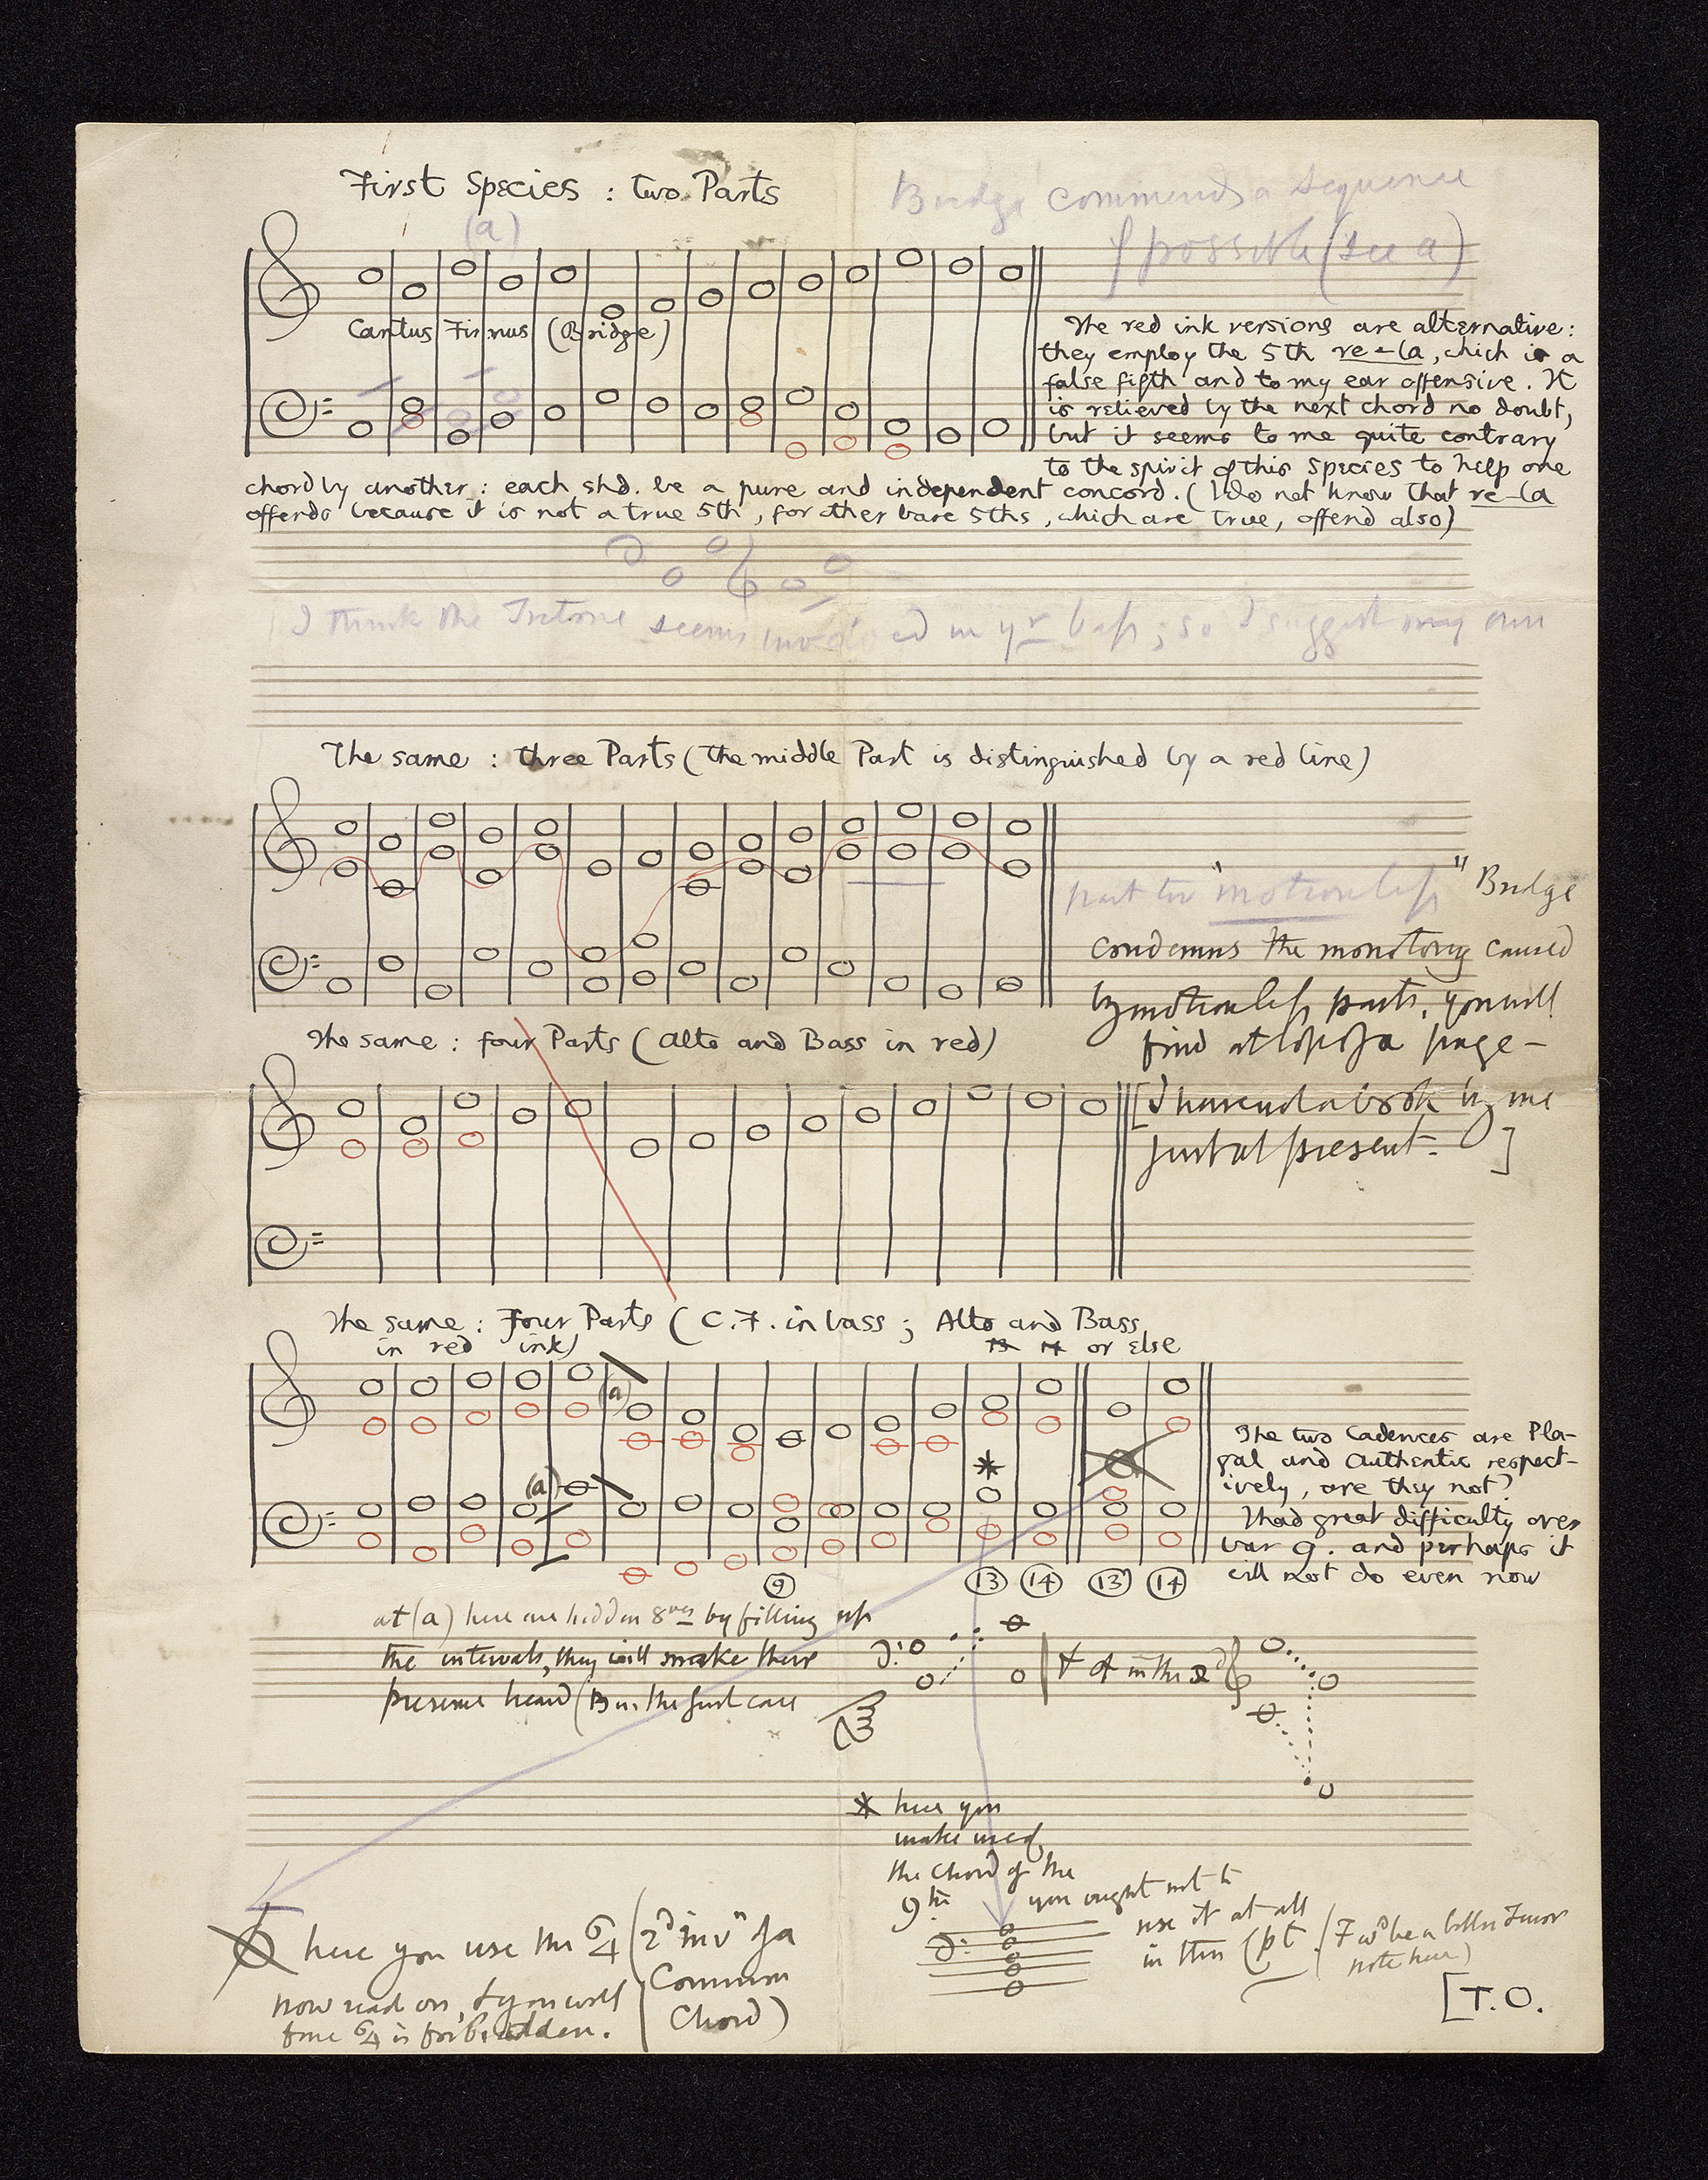 First Species : two Parts
Bridge commends a sequence
if possible (see a)
(a)
Cantus Firmus (Bridge)
The red ink versions are alternative:
they employ the 5th re–la, which is a
false fifth and to my ear offensive. It
is relieved by the next chord no doubt,
but it seems to me quite contrary
to the spirit of this species to help one
chord by another : each shd. be a pure and independent concord. (I do not know that re–la
offends because it is not a true 5th, for other bare 5ths, which are true, offend also)
I think the Tritone seems involved in yr bass ; so I suggest my own
The same : three Parts (the middle Part is distinguished by a red line)
part too "motionless" Bridge
condemns the monotony caused
by motionless parts, you will
find at top of a page –
[I have not a book by me
just at present. ]
The same : four Parts (Alto and Bass in red)
The same : Four Parts (C.F. in bass ; Alto and Bass
in red ink)
13 14 or else
(a)
(a)
*
The two Cadences are Pla-
gal and Authentic respect-
ively, are they not?
I had great difficulty over
bar 9. and perhaps it
will not do even now
9 13 14 13 14
at (a) here are hidden 8ves by filling up
the intervals, they will make their
presence heard (B in the first case
& A in the 2d
* here you
make use of
the chord of the
9th
you ought not to
use it at all
in this cpt. (F wd be a better Tenor
note here)
here you use the 6/4 (2d invn of a
Common
Chord)
now read on, & you will
find 6/4 is forbidden.
[T.O.